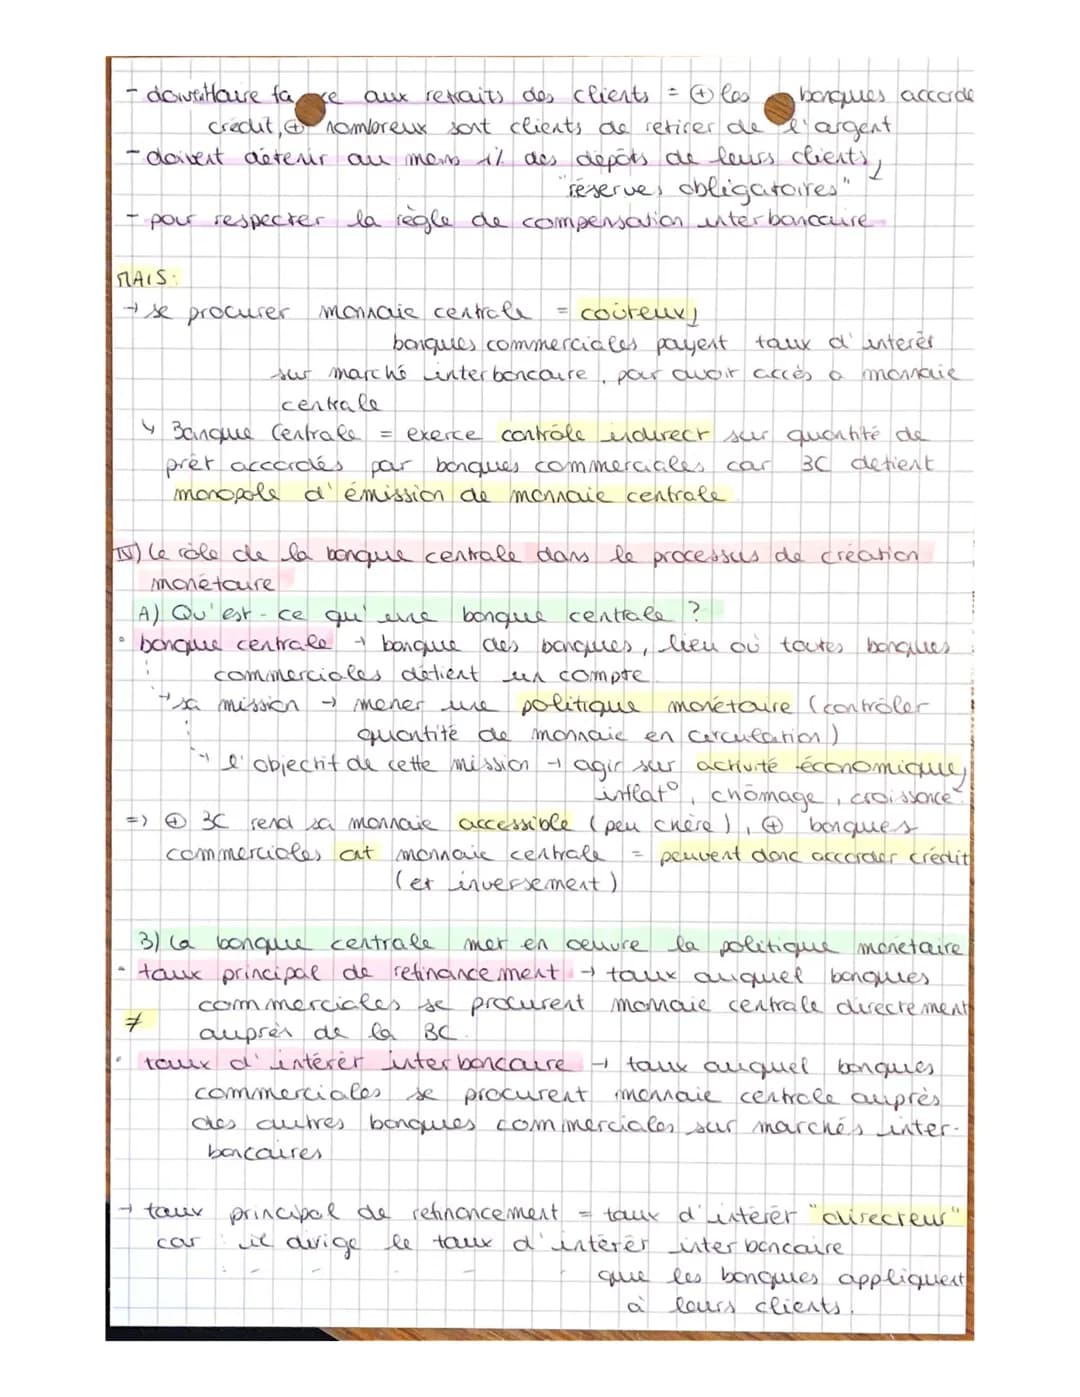 - doivent faire face aux retraits des clients = ⊕ les banques accorde
crédit, ⊕ nombreux sont clients de retirer de l'argent
- doivent détenir au moins 1% des dépôts de leurs clients,
"réserves obligatoires"
- pour respecter la règle de compensation interbancaire
MAIS:
→ se procurer monnaie centrale = coûteux,
banques commerciales payent taux d'intérêt
sur marché interbancaire, pour avoir accès à monnaie
centrale
↳ Banque Centrale = exerce contrôle indirect sur quantité de
prêt accordés par banques commerciales car BC détient
monopole d'émission de monnaie centrale
IV) Le rôle de la banque centrale dans le processus de création
monétaire
A) Qu'est-ce qu'une banque centrale ?
• banque centrale → banque des banques, lieu où toutes banques
commerciales détient un compte
→ sa mission → mener une politique monétaire (contrôler
quantité de monnaie en circulation)
→ l'objectif de cette mission → agir sur activité économique,
inflat°, chômage, croissance.
=> ⊕ BC rend sa monnaie accessible (peu chère), ⊕ banques
commerciales ont monnaie centrale = peuvent donc accorder crédit
(et inversement)
B) La banque centrale met en oeuvre la politique monétaire
• taux principal de refinancement → taux auquel banques
commerciales se procurent monnaie centrale directement
≠ auprès de la BC.
• taux d'intérêt interbancaire → taux auquel banques
commerciales se procurent monnaie centrale auprès
des autres banques commerciales sur marchés inter-
bancaires
→ taux principal de refinancement = taux d'intérêt "directeur"
car il dirige le taux d'intérêt interbancaire
que les banques appliquent
à leurs clients.